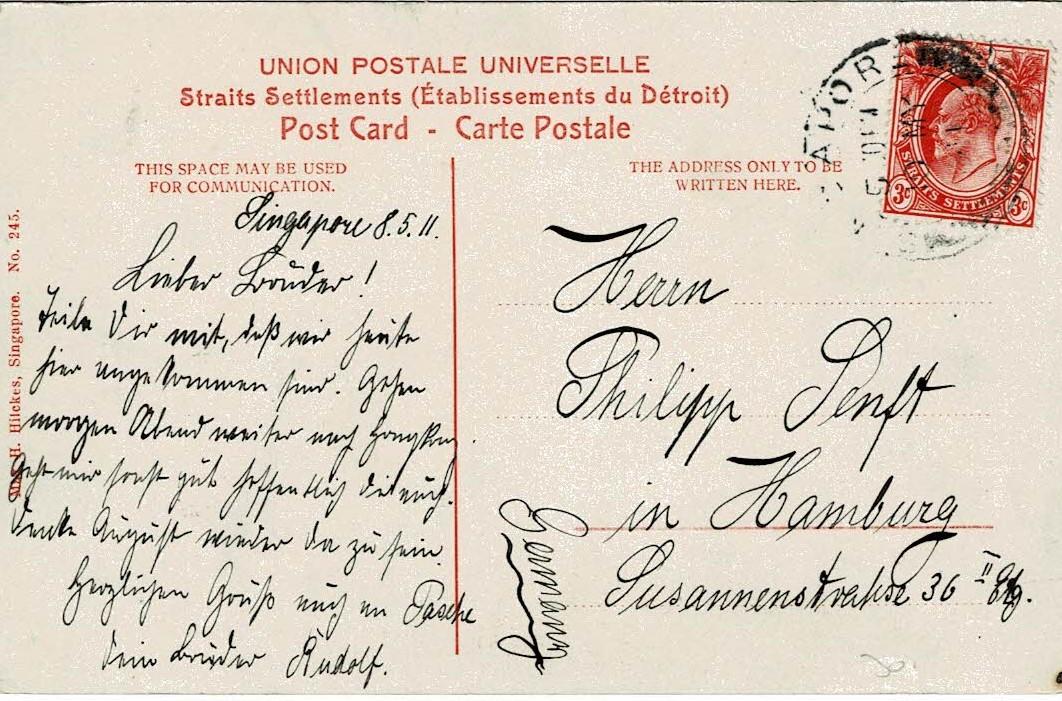 UNION POSTALE UNIVERSELLE
Straits Settlements (Établissements du Détroit)
Post Card - Carte Postale
THIS SPACE MAY BE USED
FOR COMMUNICATION.
THE ADDRESS ONLY TO BE
WRITTEN HERE.
Max H. Hilckes, Singapore. No. 245.
Singapore 8.5.11.
Lieber Bruder!
Teile Dir mit, daß wir heute
hier angekommen sind. Gehen
morgen Abend weiter nach Hongkong.
Geht mir sonst gut hoffentlich dir auch.
Denke August wieder da zu sein.
Herzlichen Gruß auch an
Dein Bruder Rudolf.
Herrn
Philipp Senft
in Hamburg
Susannenstrahse 36 II Etg.
Germany
STRAITS SETTLEMENTS
3c 3c